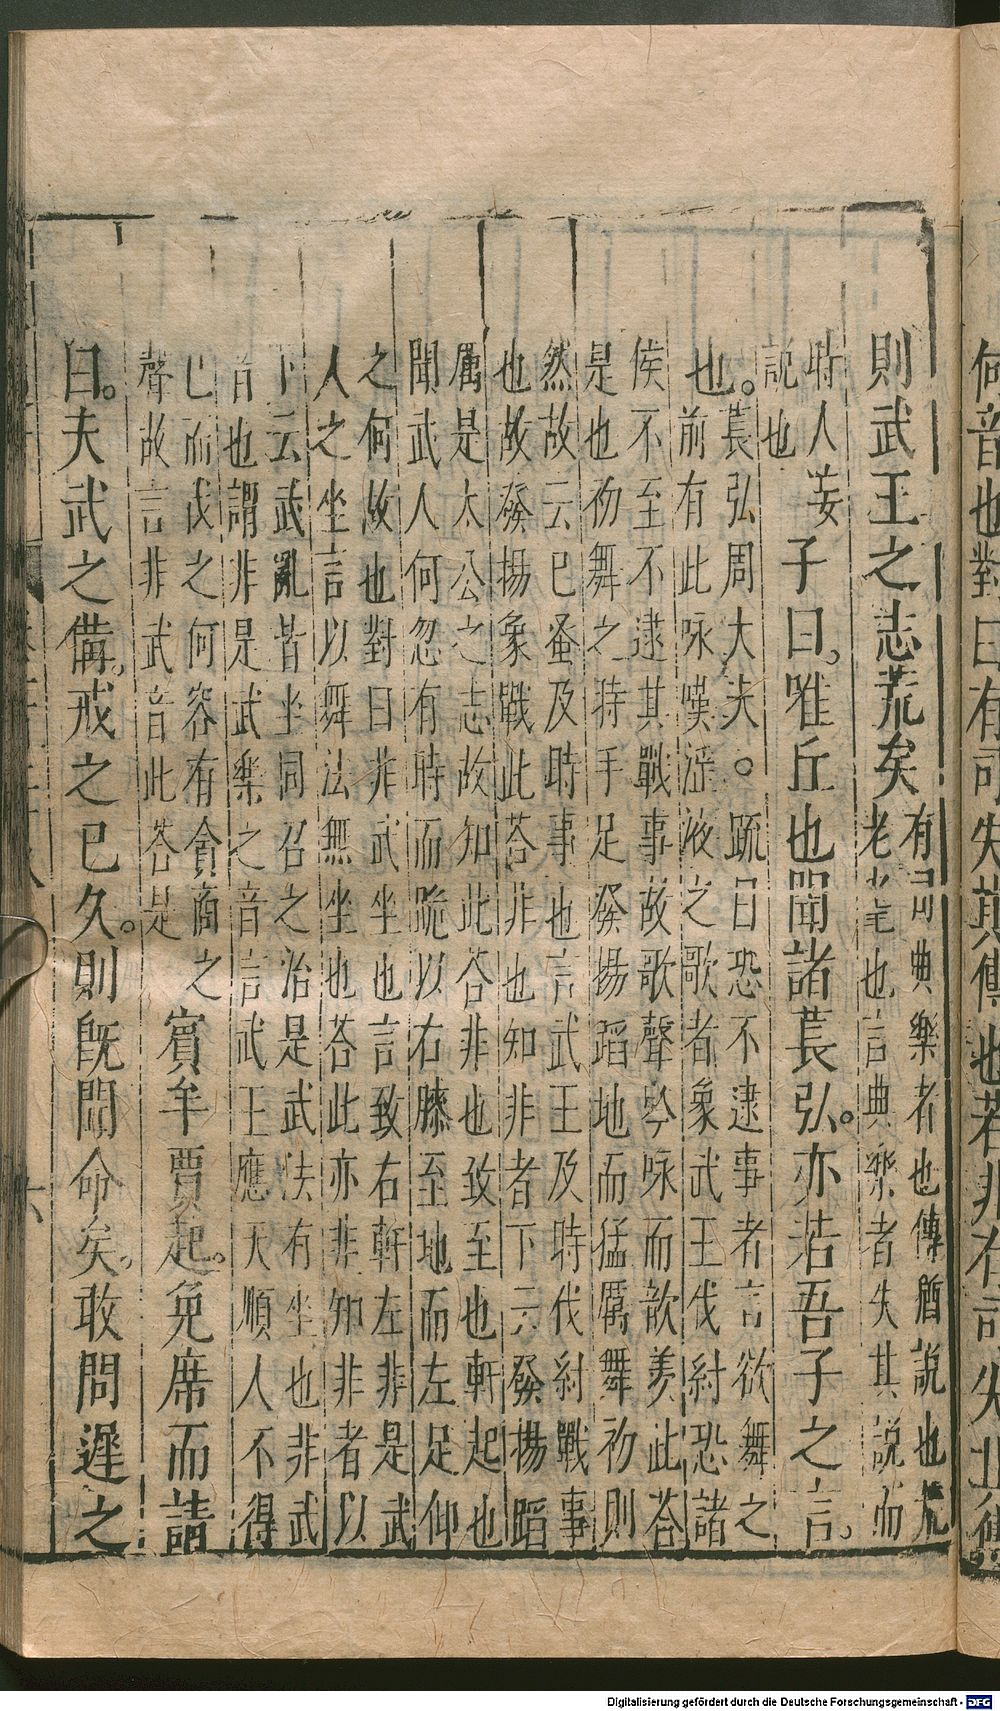 何音也對曰有司失其傳也若非有司失其傳
則武王之志荒矣
有司典樂者也傳猶說也荒
老耄也言典樂者失其說而
時人妄
說也
子曰。唯丘也聞諸萇弘。亦若吾子之言。
也。
萇弘周大夫。疏曰恐不逮事者言欲舞之
前有此咏嘆淫液之歌者象武王伐紂恐諸
侯不至不逮其戰事故歌聲吟咏而歆羨此荅
是也初舞之時手足發揚蹈地而猛厲舞初則
然故云已蚤及時事也言武王及時伐紂戰事
也故發揚象戰此荅非也知非者下云發揚蹈
厲是太公之志故知此荅非也致至也軒起也
聞武人何忽有時而跪以右膝至地而左足仰
之何故也對曰非武坐也言致右軒左非是武
人之坐言以舞法無坐也荅此亦非知非者以
下云武亂皆坐同召之治是武法有坐也非武
音也謂非是武樂之音言武王應天順人不得
已而伐之何容有貪商之
聲故言非武音此荅是
賓牟賈起。免席而請
曰。夫武之備。戒之已久。則旣聞命矣。敢問遲之
Digitalisierung gefördert durch die Deutsche Forschungsgemeinschaft - DFG